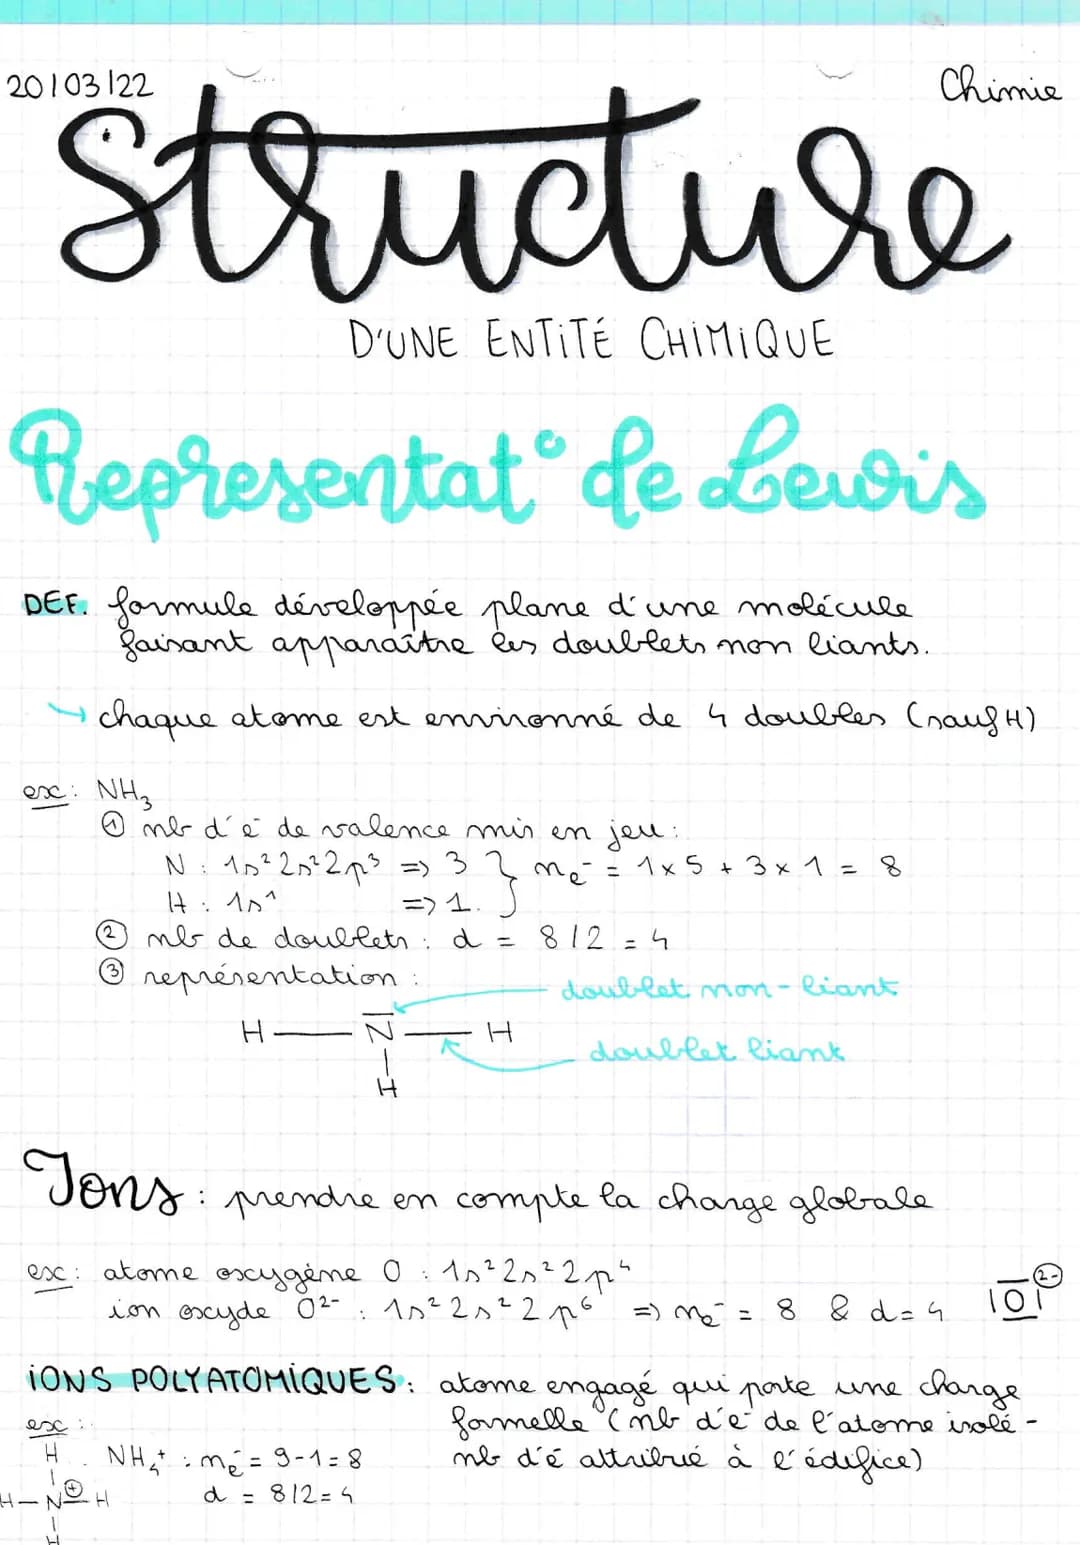 20/03/22
Chimie
Structure
D'UNE ENTITÉ CHIMIQUE
Representat° de Lewis
DEF. formule développée plane d'une molécule
faisant apparaître les doublets non liants.
↪ chaque atome est environné de 4 doubles (sauf H)
ex: NH₃
① nb d'e⁻ de valence mis en jeu:
N : 1s² 2s² 2p³ => 3 } nₑ⁻ = 1x5 + 3x1 = 8
H : 1s¹ => 1.
② nb de doublets : d = 8/2 = 4
③ représentation :
doublet non-liant
H — N — H
doublet liant
H
Ions : prendre en compte la charge globale
ex: atome oxygène O : 1s² 2s² 2p⁴
ion oxyde O²⁻ : 1s² 2s² 2p⁶ => nₑ⁻ = 8 & d = 4 |O| 2-
IONS POLYATOMIQUES: atome engagé qui porte une charge
ex : formelle (nb d'e⁻ de l'atome isolé -
H NH₄⁺ : nₑ⁻ = 9-1 = 8 nb d'é attribué à l'édifice)
H — N⊕ — H d = 8/2 = 4
H